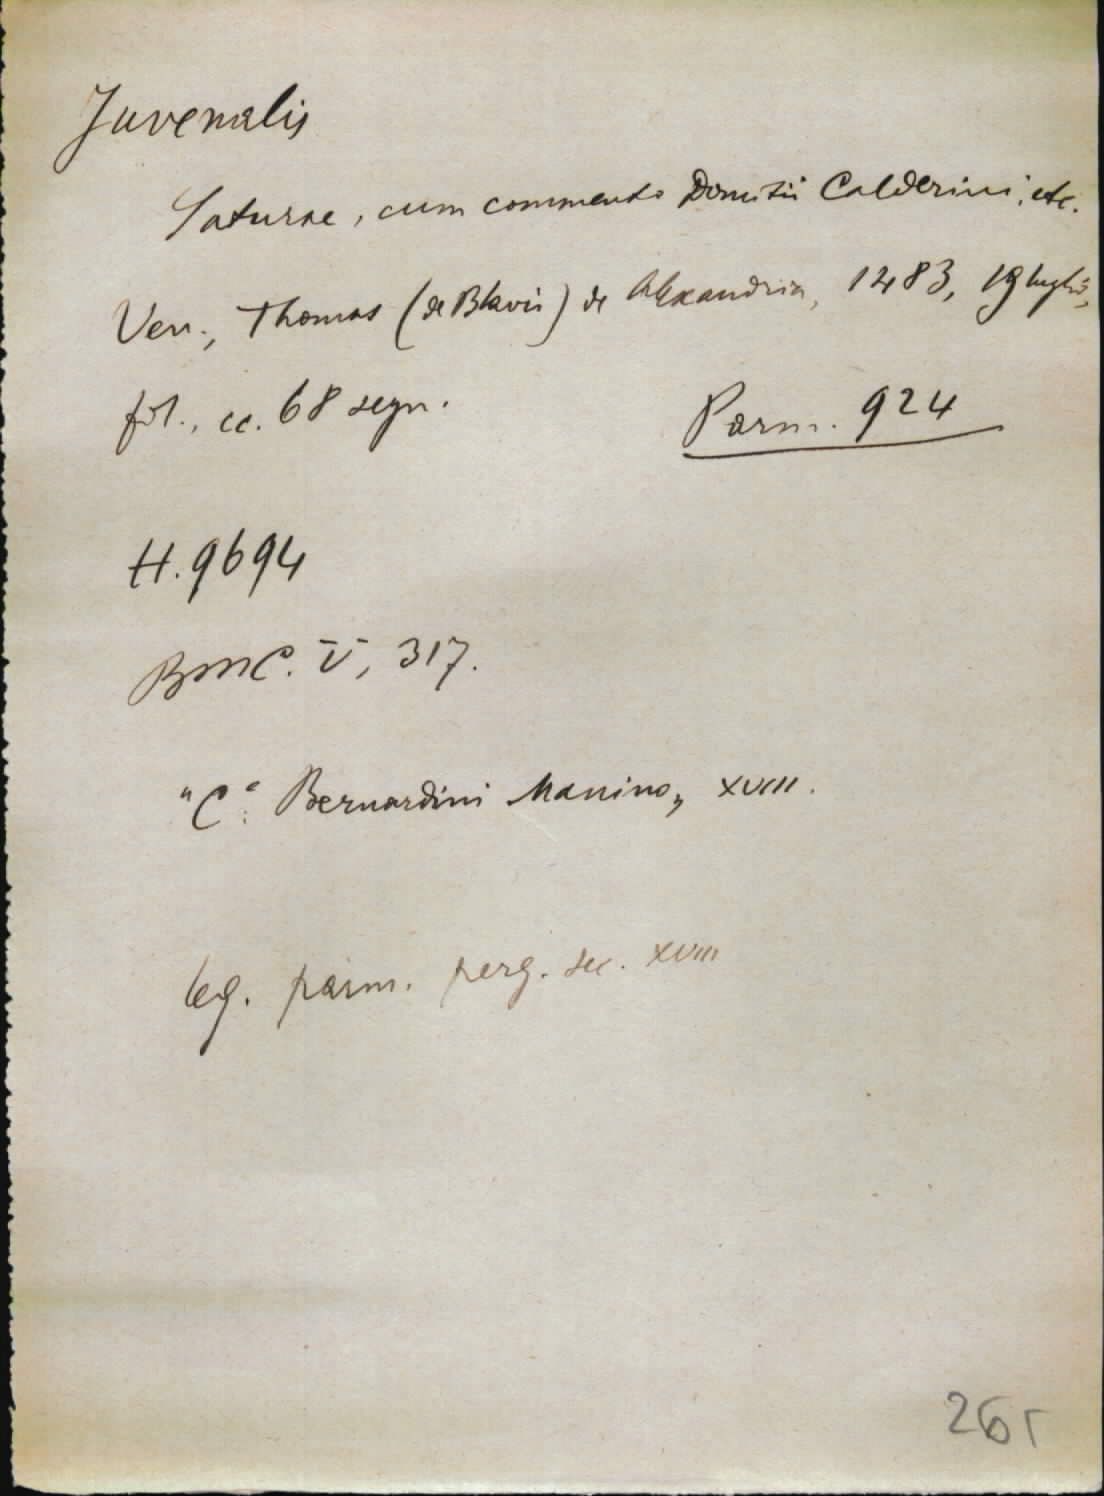 Juvenalis
Saturae, cum commento Domitii Calderini, etc.
Ven., Thomas (de Blavis) de Alexandria, 1483, 19 luglio,
fol., cc. 68 segn.
Parm. 924
H. 9694
BMC. V, 317.
"C. Bernardini Manino„ XVIII.
leg. parm. perg. sec. XVIII
26r